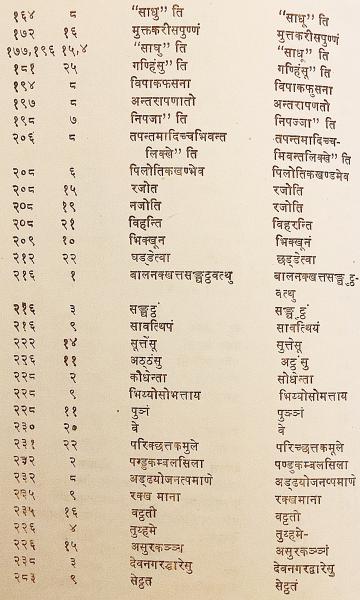 १६४ ८ “साधु” ति “साधू” ति
१७२ १६ मुत्तकरीसपुण्णं मुत्तकरीसपुण्णं
१७७,१९६ १५,४ “साधु” ति “साधू” ति
१८१ २५ गण्हिंसु” ति गण्हिंसू” ति
१९४ ८ विपाकफसना विपाकफुसना
१९७ ८ अन्तरापणातो अन्तरापणतो
१९८ ७ निपजा” ति निपज्जा” ति
२०६ ८ तपन्तमादिच्चभिवन्त तपन्तमादिच्च-
लिक्खे” ति मिवन्तलिक्खे” ति
२०८ ६ पिलोतिकखण्भेव पिलोतिकखण्डमेव
२०८ १५ रजोत रजोति
२०८ १९ नजोति रजोति
२०८ २१ विहन्ति विहरन्ति
२०९ १० भिक्खून भिक्खूनं
२१२ २२ घड्डेत्वा छड्डेत्वा
२१६ १ बालनक्खत्तसङ्घट्ठवत्थु बालनक्खत्तसङ्घुट्ठ-
वत्थु
२१६ ३ सङ्घट्ठं सङ्घुट्ठं
२१६ ९ सावत्थिपं सावत्थियं
२२२ १४ सुत्तेंसू सुत्तेसू
२२६ ११ अठ्ठंसु अट्ठंसु
२२८ २ कोधेन्ता सोधेन्ता
२२८ ९ भिय्योसोभत्ताय भिय्योसोमत्ताय
२२८ ११ पुञ्नं पुञ्ञं
२३० २७ वे वे
२३१ २२ परिक्छत्तकमुले परिच्छत्तकमूले
२३२ २ पण्डुकम्बलसिला पण्डुकम्बलसिला
२३२ ८ अड्ढयोजनत्वमाणे अड्ढयोजनप्पमाणे
२३५ ९ रक्ख माना रक्खमाना
२३५ १६ वट्ठती वट्टती
२२६ ४ तुय्हमे तुय्हमे-
२२६ १५ असुरकञ्ञा असुरकञ्ञं
२३८ ३ देवनगरद्धारेसु देवनगरद्वारेसु
२८३ ९ सेट्ठत सेट्ठतं